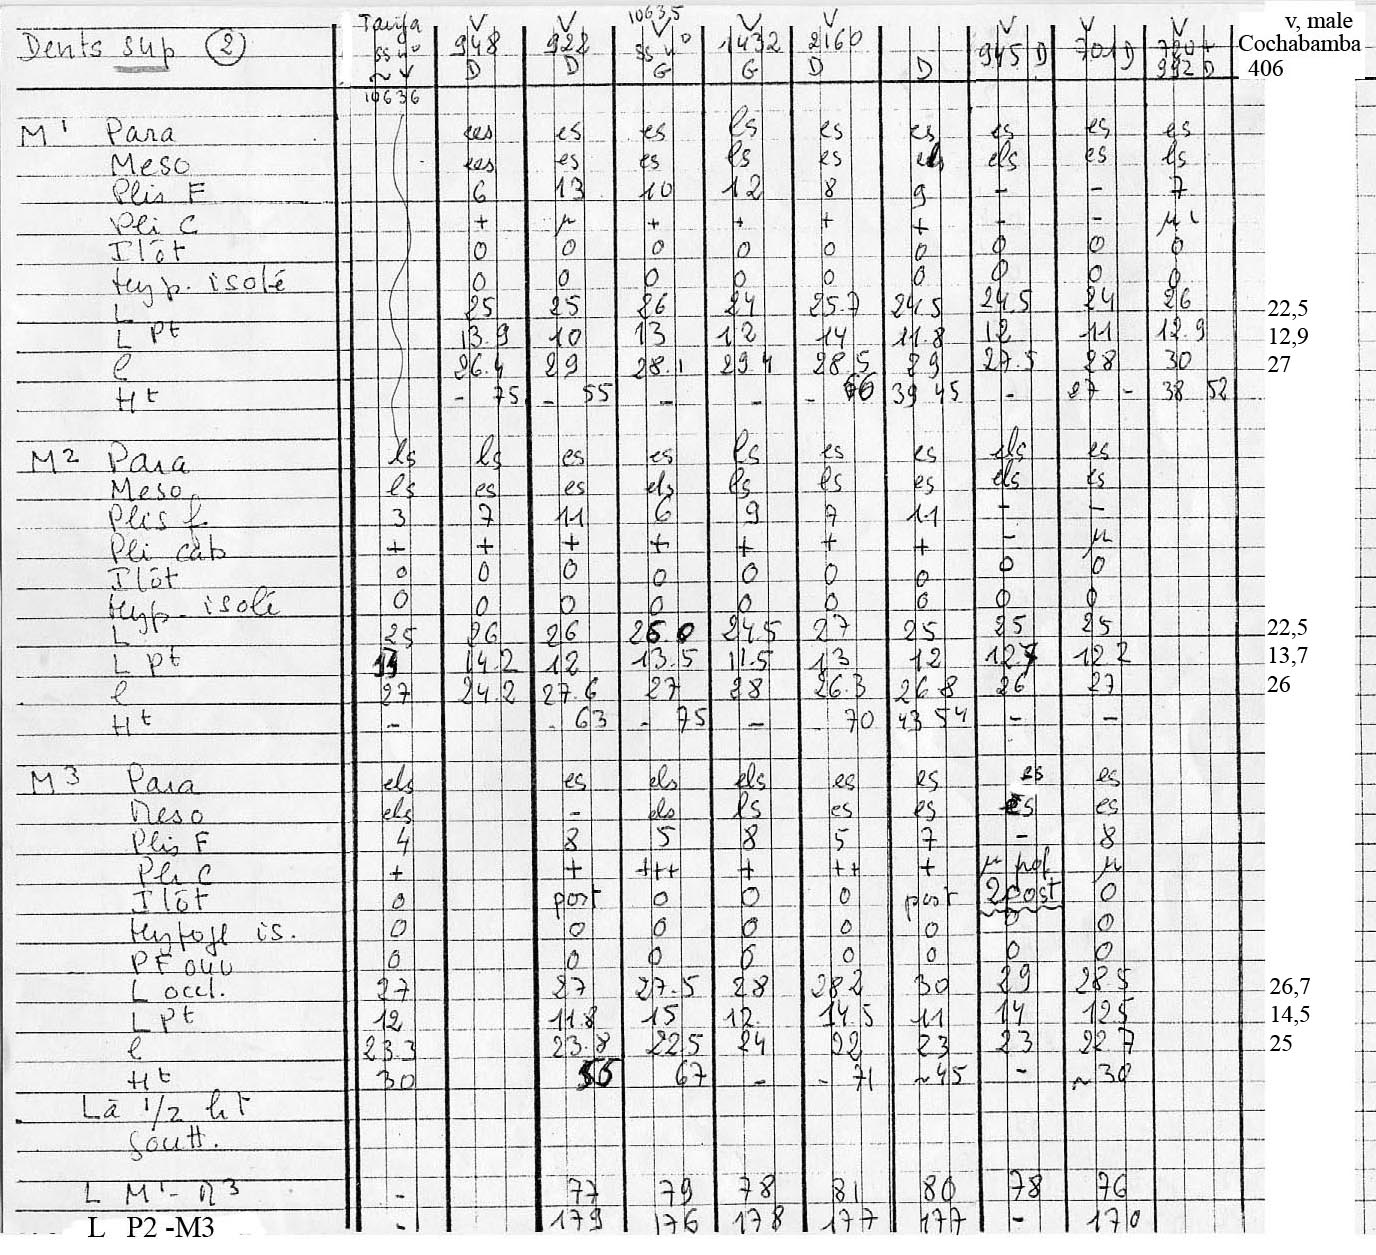 Dents sup (2) Tarija ss n° ~ V 10636 V 948 D V 922 D 10635 V ss n° G V 1432 G V 2160 D D V 945 D V 701 D V 720+ 992 D v, male Cochabamba 406
M1 Para ees es es ls es es es es es
Meso ees es es ls es els els es ls
Plis F 6 13 10 12 8 9 - - 7
Pli C + μ + + + + - - μ
Ilôt 0 0 0 0 0 0 0 0 0
Hyp. isolé 0 0 0 0 0 0 0 0 0
L 25 25 26 24 25.7 24.5 24.5 24 26 22,5
L Pt 13.9 10 13 12 14 11.8 12 11 12.9 12,9
l 26.4 29 28.1 29.4 28.5 29 27.5 28 30 27
Ht - 75 - 55 - - - 66 39 45 - 27 - 38 52
M2 Para ls ls es es ls es es els es
Meso ls es es els ls ls es els es
Plis f 3 7 11 6 9 7 11 - -
Pli cab + + + + + + + - μ
Ilôt 0 0 0 0 0 0 0 0 0
Hyp. isolé 0 0 0 0 0 0 0 0 0
L 25 26 26 26 0 24.5 27 25 25 25 22,5
L Pt 14.2 12 13.5 11.5 13 12 12.7 12 2 13,7
l 27 24.2 27.6 27 28 26.3 26.8 26 27 26
Ht - - 63 - 75 - 70 43 54 - -
M3 Para els es els els es es es es
Meso els - els ls es es es es
Plis F 4 8 5 8 5 7 - 8
Pli C + + +++ + ++ + μ μ
Ilôt 0 post 0 0 0 post 2 post 0
Hypogl is. 0 0 0 0 0 0 0 0
PF ouv 0 0 0 0 0 0 0 0
L occl. 27 27 27.5 28 28 2 30 29 28.5 26,7
L Pt 12 11.8 15 12. 14.5 11 14 12.5 14,5
l 23.3 23.8 22.5 24 22 23 23 22 7 25
Ht 30 67 - - 71 ~45 - ~30
L à 1/2 ht
Goutt.
L M1 - M3 - 77 79 78 81 80 78 76
L P2 -M3 - 179 176 178 177 177 - 170